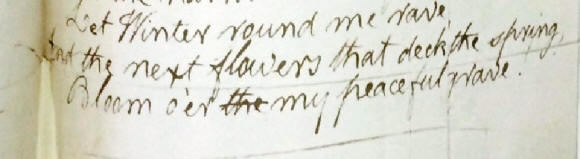 Let Winter round me rave,
And the next flowers that deck the spring,
Bloom o'er the my peaceful grave.